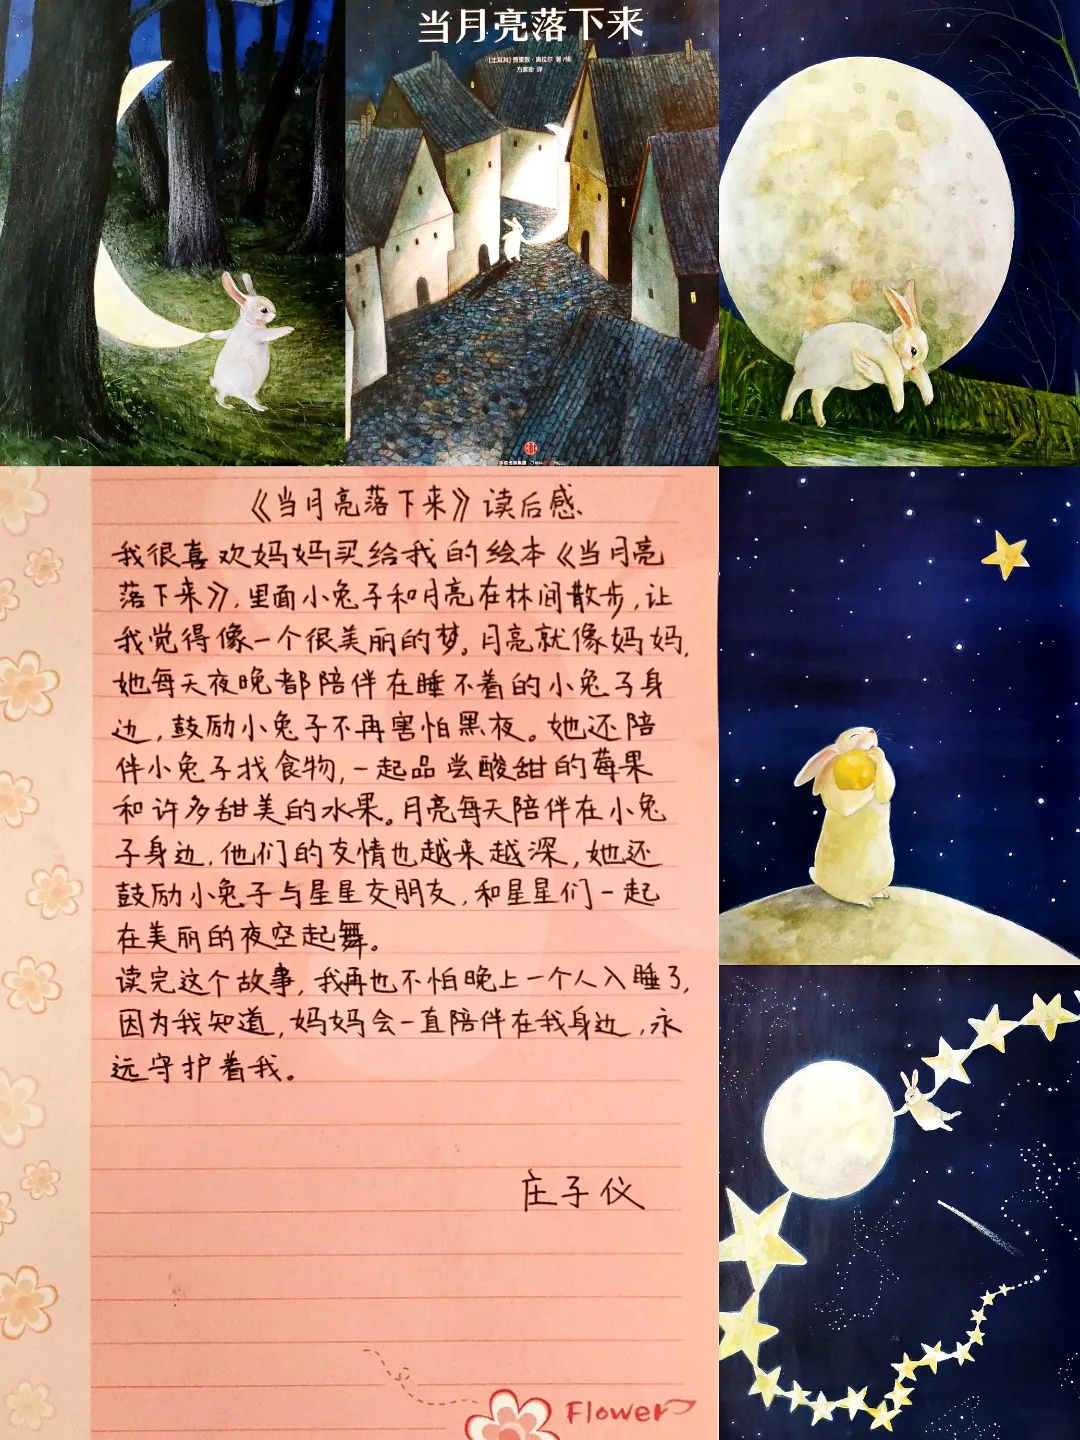 当月亮落下来
方素珍 译
《当月亮落下来》读后感
我很喜欢妈妈买给我的绘本《当月亮
落下来》,里面小兔子和月亮在林间散步,让
我觉得像一个很美丽的梦。月亮就像妈妈,
她每天夜晚都陪伴在睡不着的小兔子身
边,鼓励小兔子不再害怕黑夜。她还陪
伴小兔子找食物,一起品尝酸甜的莓果
和许多甜美的水果。月亮每天陪伴在小兔
子身边,他们的友情也越来越深,她还
鼓励小兔子与星星交朋友,和星星们一起
在美丽的夜空起舞。
读完这个故事,我再也不怕晚上一个人入睡了,
因为我知道,妈妈会一直陪伴在我身边,永
远守护着我。
庄子仪
Flower